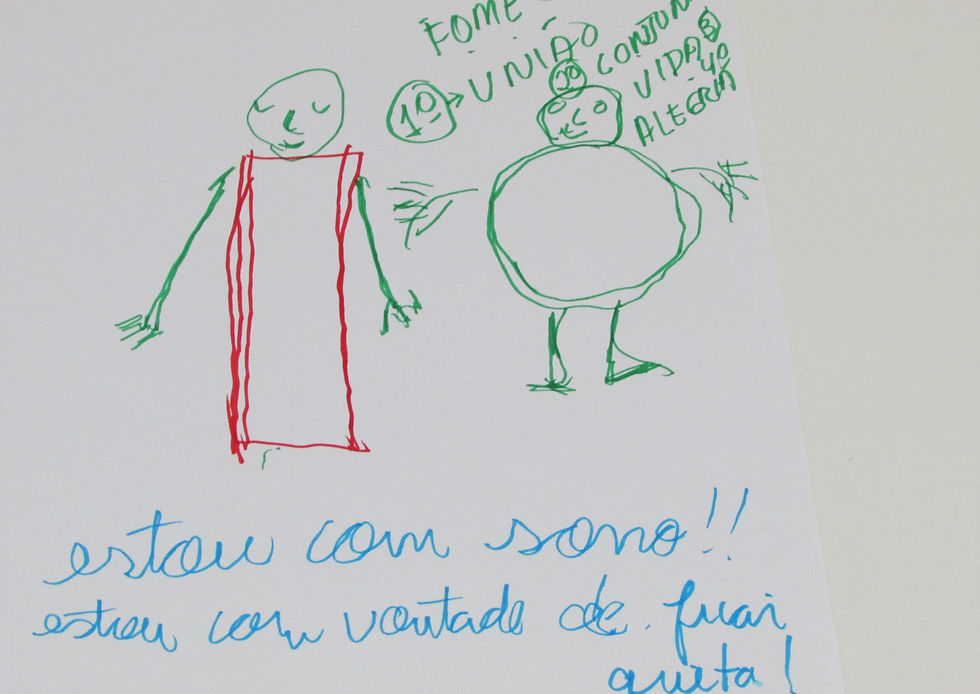 FOME
1º → UNIÃO
CONJUN
VIDA
ALEGRIA
estou com sono!!
estou com vontade de ficar
quieta!